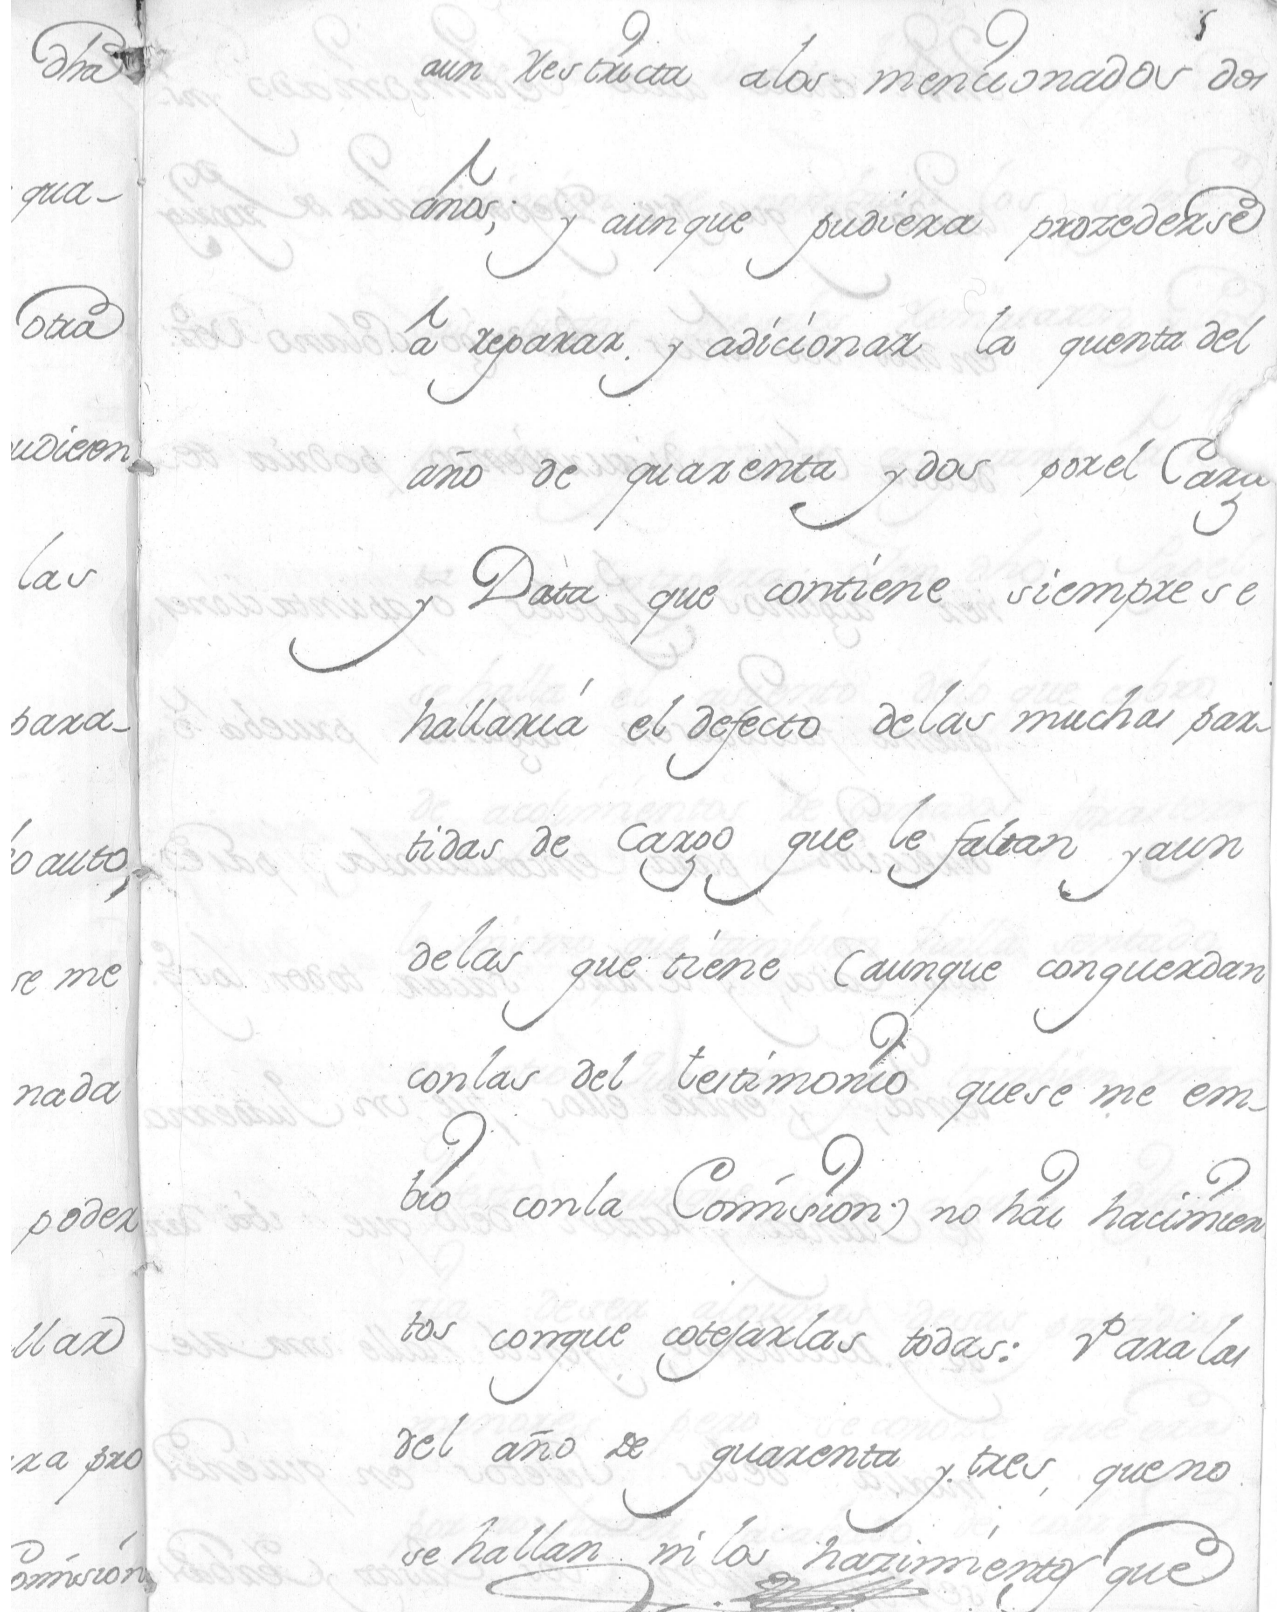 5
dha
qua-
otra
udieron
las
para-
o auto,
se me
nada
poder
llar
ra pro
Comisión
aun restricta alos mencionados dos
años; y aunque pudiera prozederse
â reparar y adicionar la quenta del
año de quarenta y dos porel Cargo
y Data que contiene siempre se
hallariá el defecto delas muchas par-
tidas de Cargo que le faltan y aun
delas que tiene (aunque conguerdan
conlas del testimonio quese me em-
bio conla Comision) no hai hacimien
tos conque cotejarlas todas: Paralas
del año de quarenta y tres, queno
se hallan ni los hazimientos que